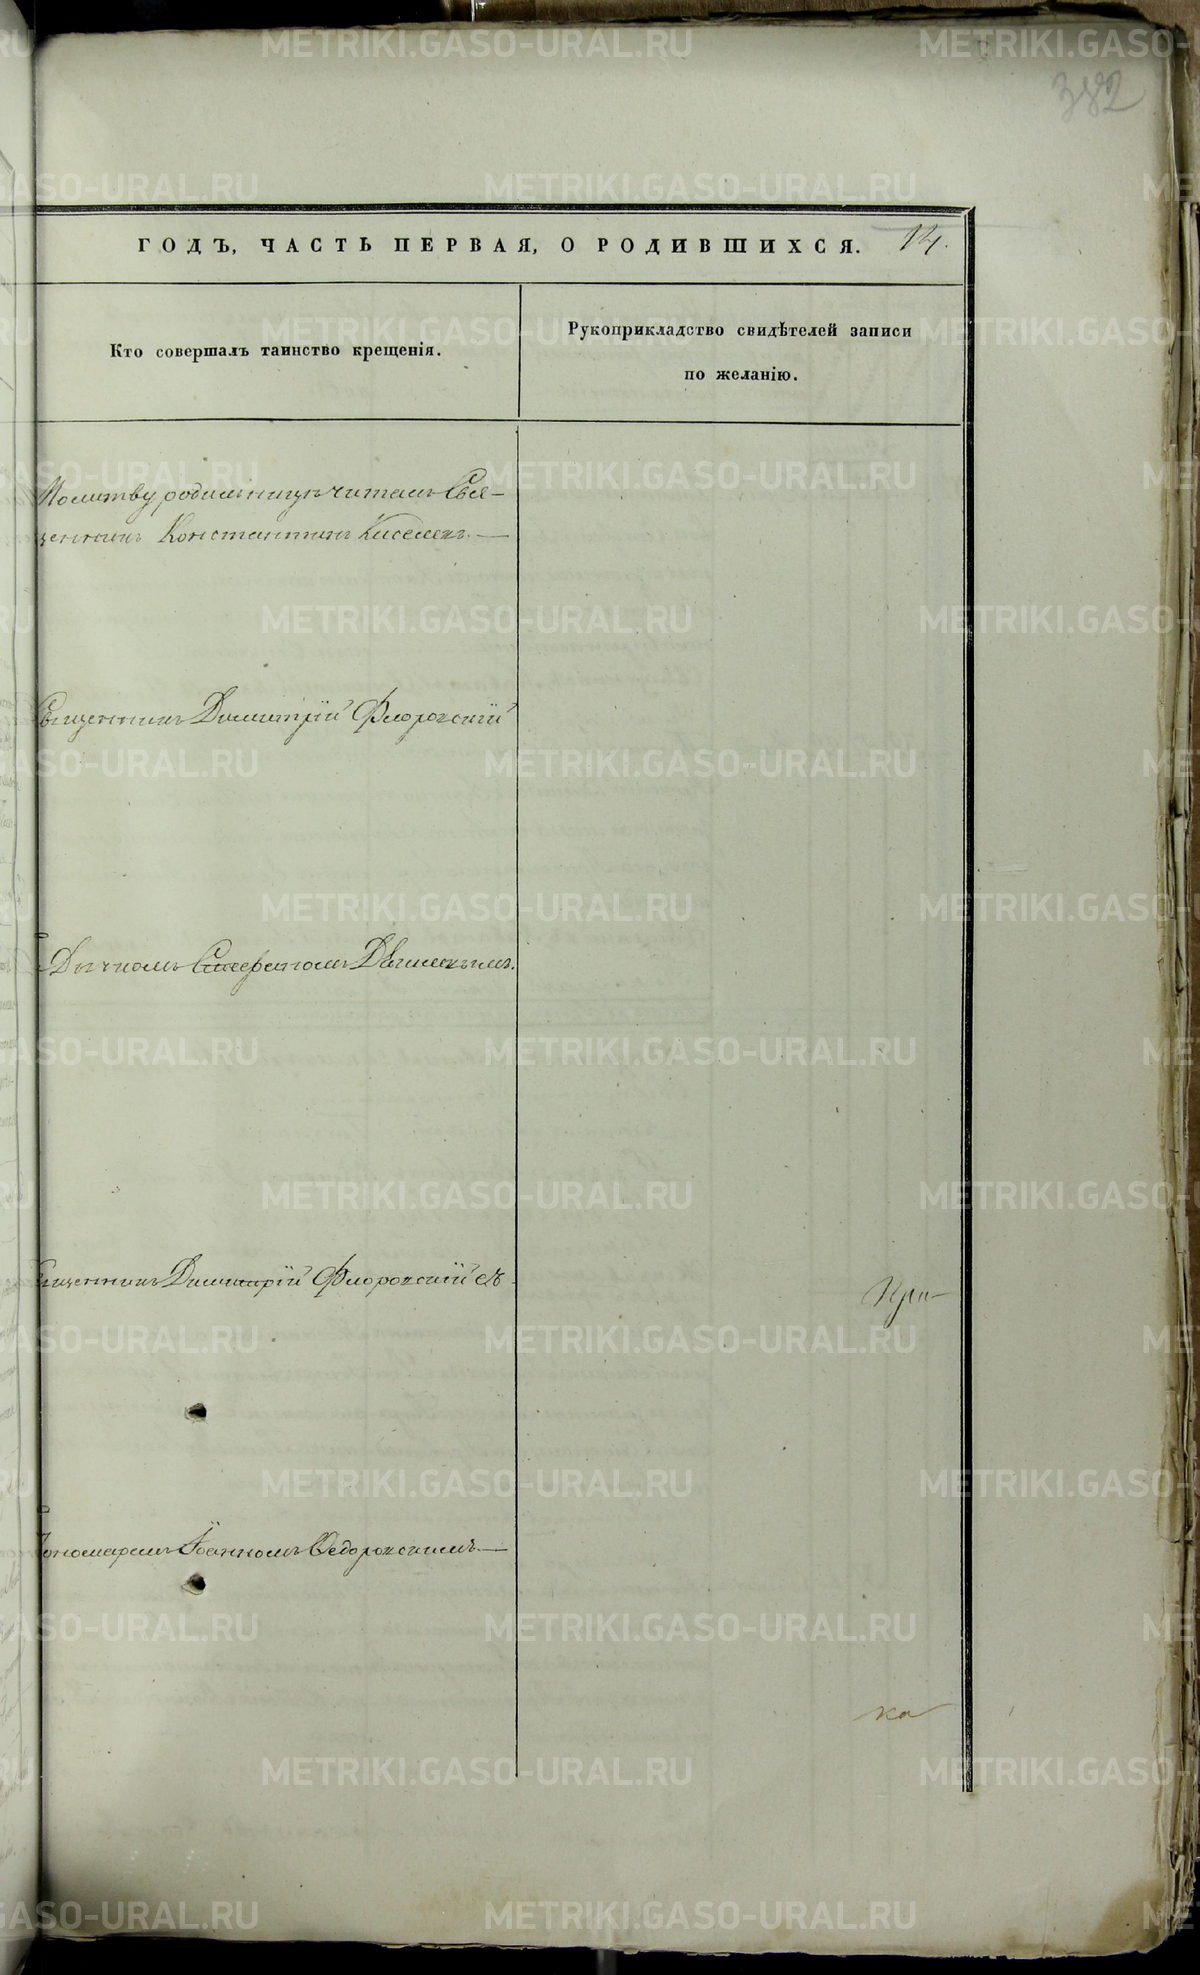 382
ГОДЪ, ЧАСТЬ ПЕРВАЯ, О РОДИВШИХСЯ. 14.
Кто совершалъ таинство крещенія.
Рукоприкладство свидѣтелей записи
по желанію.
Молитву родильницѣ читалъ Свя-
щенникъ Константинъ Киселевъ.
Священникъ Димитрій Флоровскій
Дьячкомъ
Священникъ Димитрій Флоровскій съ
Пономаремъ Іоанномъ Ѳедоровскимъ
При-
ка
METRIKI.GASO-URAL.RU